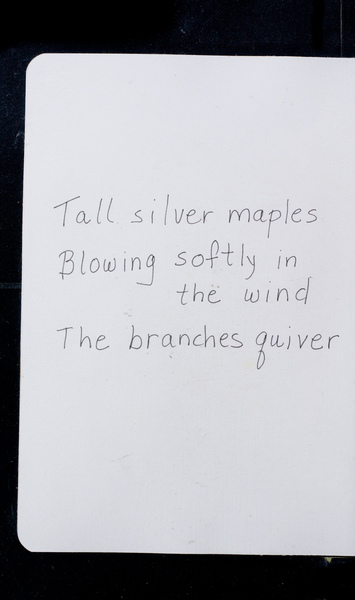 Tall silver maples
Blowing softly in
the wind
The branches quiver